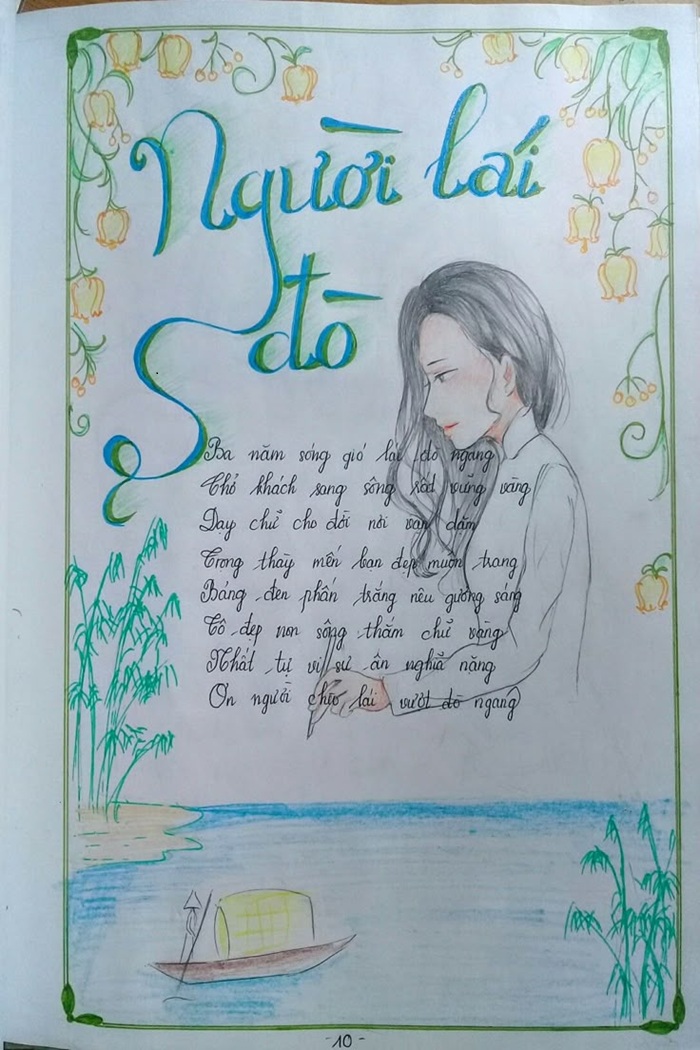 Người lái
đò
Ba năm sóng gió lái đò ngang
Chở khách sang sông rồi vững vàng
Dạy chữ cho đời nơi vạn dặm
Trong thầy mến bạn đẹp muôn trang
Bảng đen phấn trắng nêu gương sáng
Tô đẹp non sông thắm chữ vàng
Nhất tự vi sư ân nghĩa nặng
Ơn người chèo lái vượt đò ngang
-10-